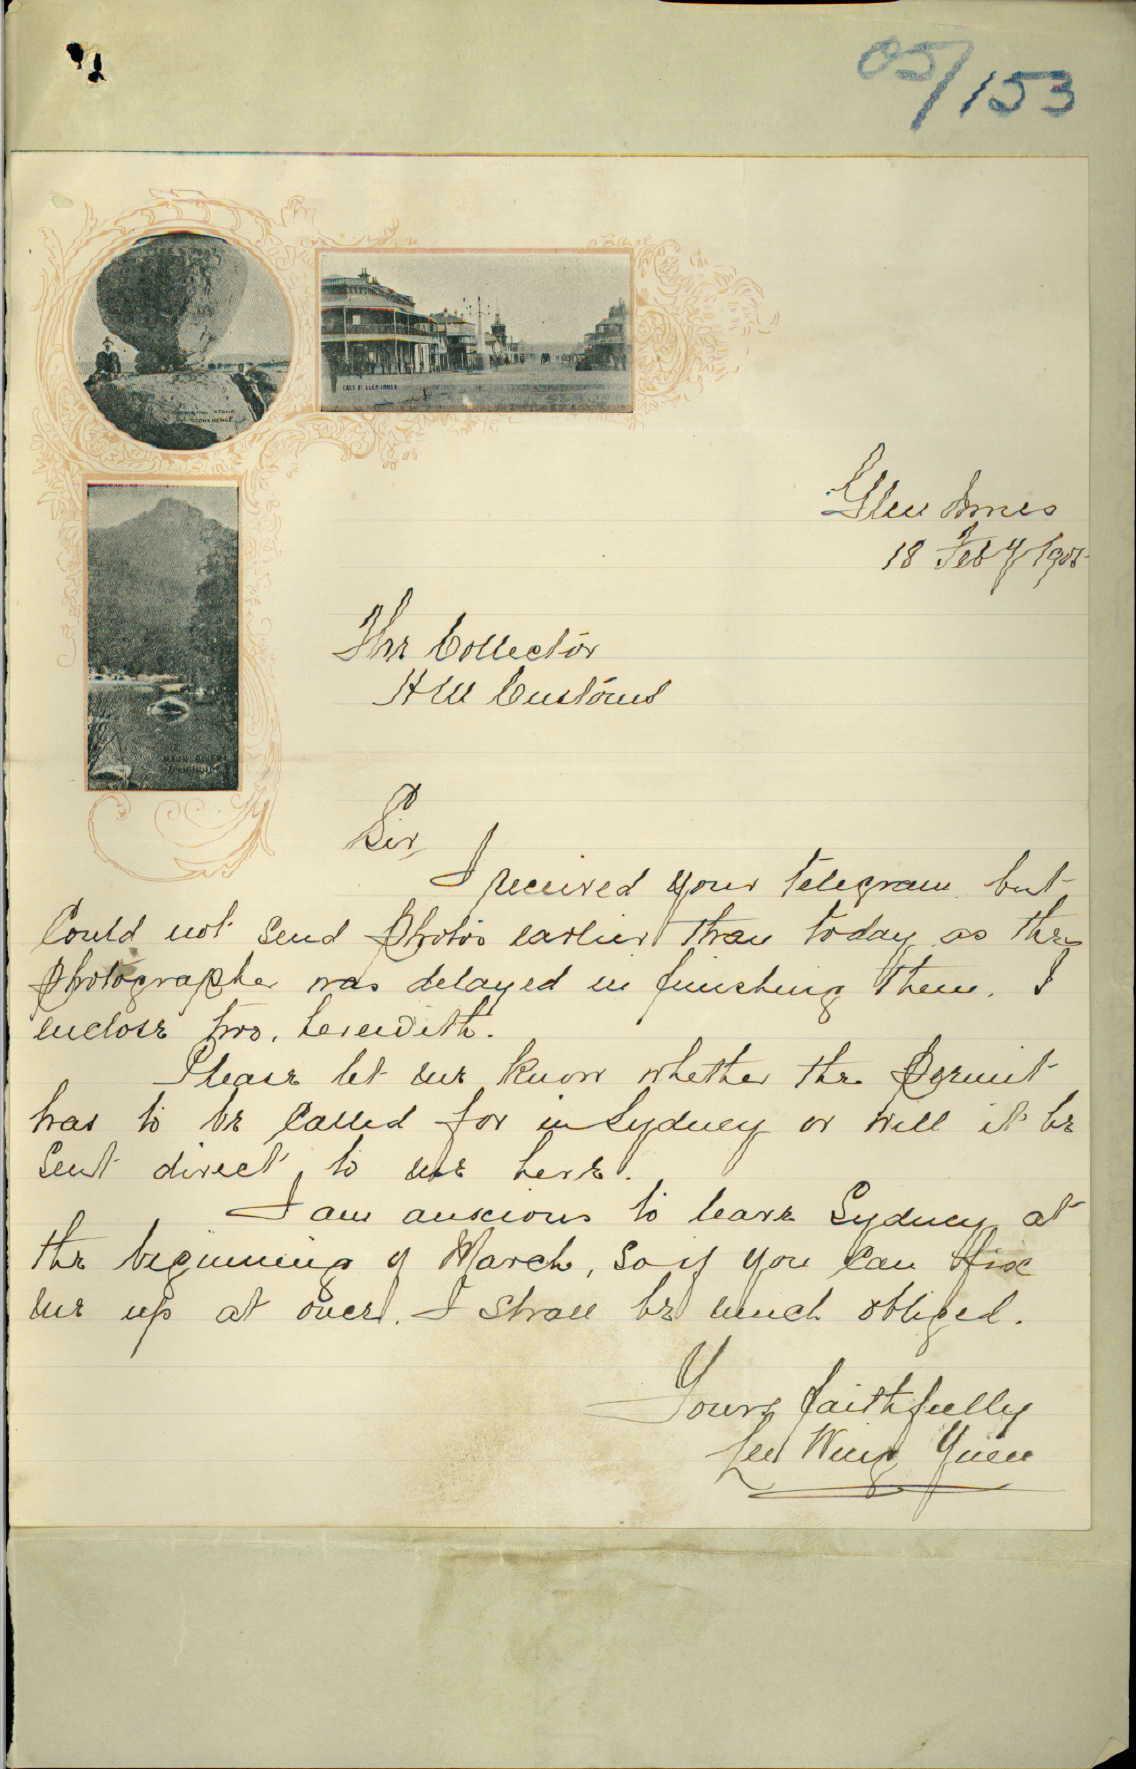 05/153
STONEHENGE
Glen Innes
18 Feby 1905
The Collector
HM Customs
Sir,
I received your telegram but
Could not Send Photos earlier than today as the
Photographer was delayed in finishing them. I
enclose two, herewith.
Please let me know whether the Permit
has to be Called for in Sydney or will it be
Sent direct to me here.
I am anxious to leave Sydney at
the beginning of March, So if you Can fix
me up at once. I Shall be much obliged.
Yours faithfully
Lee Wing Yuen